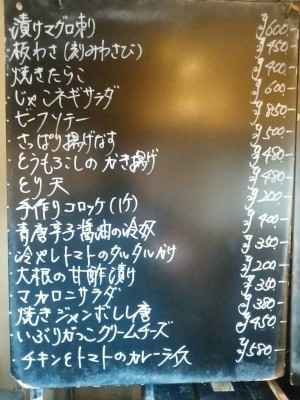 ・漬けマグロ刺 ¥600-
・板わさ(刻みわさび) ¥450-
・焼きたらこ ¥400-
・じゃこネギサラダ ¥600-
・ビーフソテー ¥850-
・さっぱり揚げなす ¥500-
・とうもろこしのかき揚げ ¥480-
・とり天 ¥480-
・手作りコロッケ(1ケ) ¥200-
・青唐辛子醤油の冷奴 ¥400-
・冷やしトマトのタルタルがけ ¥350-
・大根の甘酢漬け ¥200-
・マカロニサラダ ¥350-
・焼きジャンボしし唐 ¥380-
・いぶりがっこクリームチーズ ¥450-
・チキンとトマトのカレーライス ¥580-